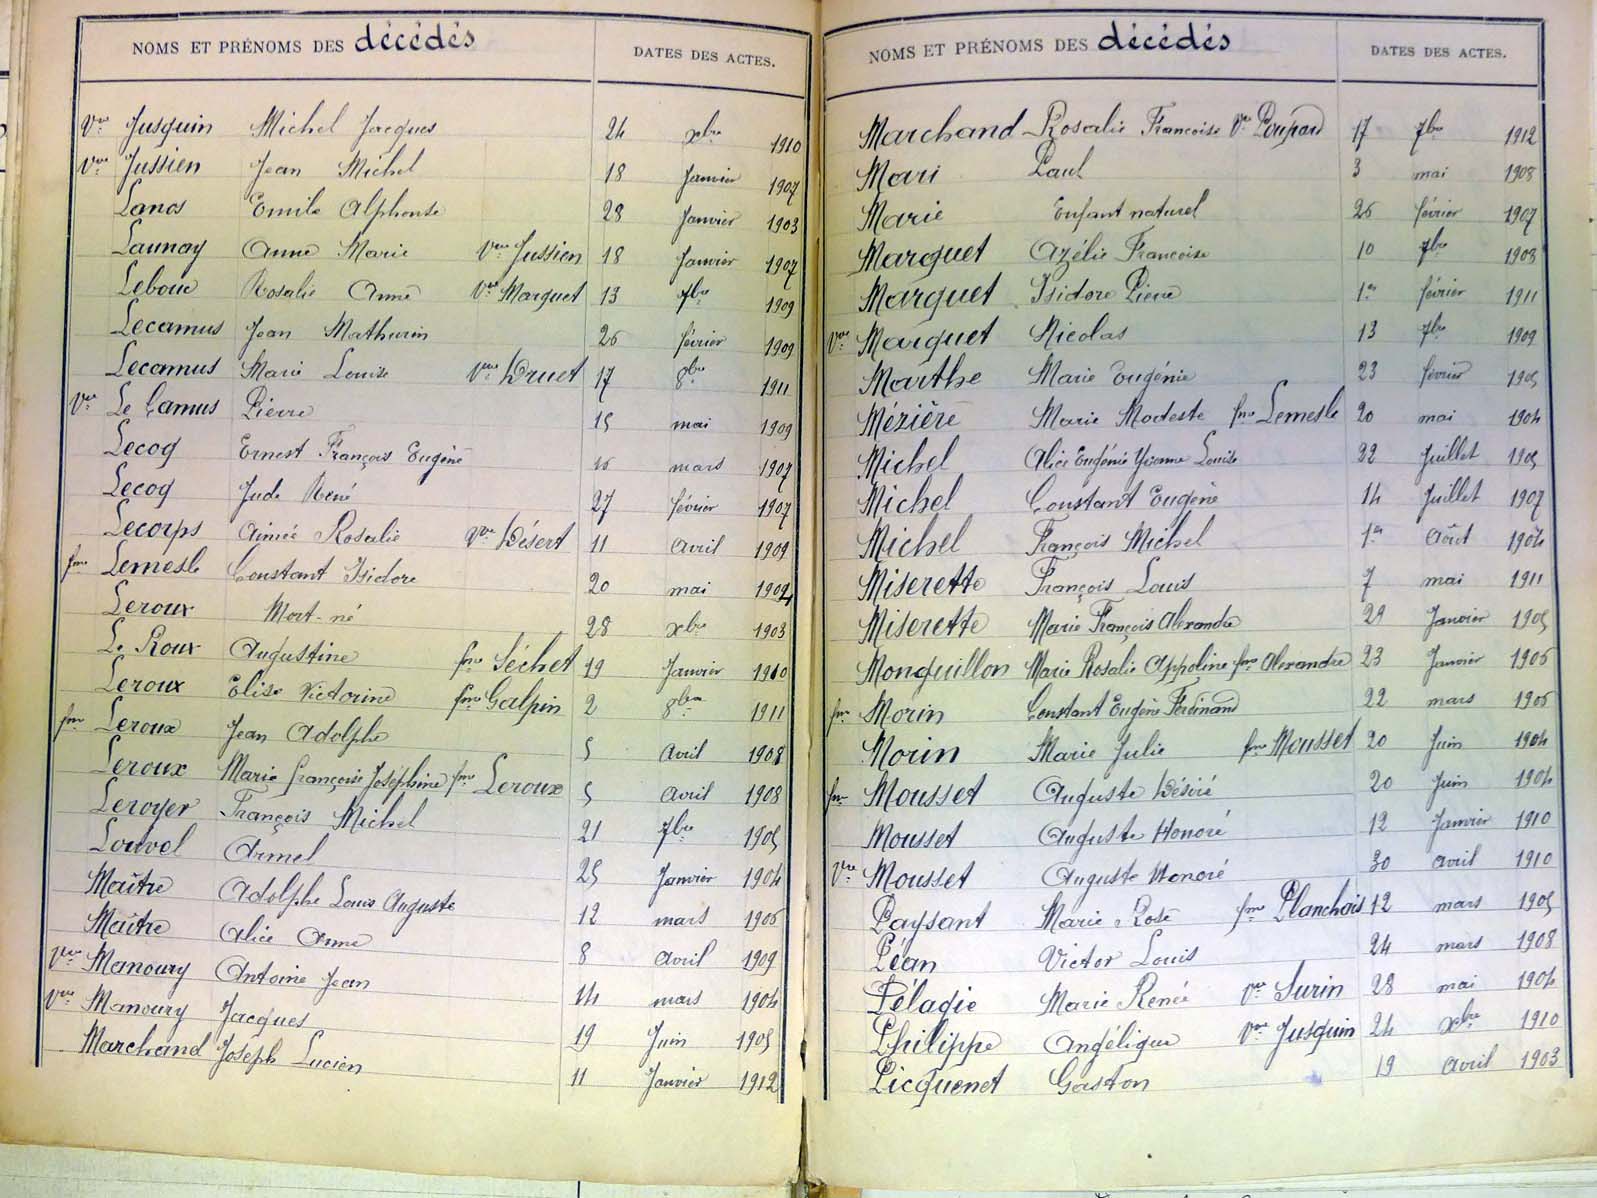 NOMS ET PRÉNOMS DES décédés DATES DES ACTES.
Vve Jusquin Michel Jacques 24 xbre 1910
Vve Jussien Jean Michel 18 Janvier 1907
Lanos Emile Alphonse 28 Janvier 1903
Launay Anne Marie Vve Jussien 18 Janvier 1907
Lebouc Rosalie Anne Vve Marguet 13 7bre 1909
Lecamus Jean Mathurin 26 février 1909
Lecamus Marie Louise Vve Druet 17 8bre 1911
Vve Le Camus Pierre 15 mai 1909
Lecoq Ernest François Eugène 16 mars 1907
Lecoq Jude René 27 février 1907
Lecorps Aimée Rosalie Vve Désert 11 Avril 1909
fme Lemesle Constant Isidore 20 mai 1904
Leroux Mort-né 28 xbre 1903
Le Roux Augustine fme Séchet 19 Janvier 1910
Leroux Elise Victorine fme Galpin 2 8bre 1911
fme Leroux Jean Adolphe 5 Avril 1908
Leroux Marie françoise Joséphine fme Leroux 5 Avril 1908
Leroyer François Michel 21 7bre 1905
Louvel Armel 25 Janvier 1904
Maître Adolphe Louis Auguste 12 mars 1906
Maître Alice Anne 8 Avril 1909
Vve Manoury Antoine Jean 14 mars 1904
Vve Manoury Jacques 19 Juin 1905
Marchand Joseph Lucien 11 Janvier 1912
NOMS ET PRÉNOMS DES décédés DATES DES ACTES.
Marchand Rosalie Françoise Vve Poupard 17 7bre 1912
Mari Paul 3 mai 1908
Marie Enfant naturel 26 février 1907
Marguet Azélie Françoise 10 7bre 1908
Marguet Isidore Pierre 1er février 1911
Vve Marguet Nicolas 13 7bre 1909
Marthe Marie Eugénie 23 février 1905
Mézière Marie Modeste fme Lemesle 20 mai 1904
Michel Alice Eugénie Yvonne Louise 22 Juillet 1905
Michel Constant Eugène 14 Juillet 1907
Michel François Michel 1er Août 1904
Miserette François Louis 7 mai 1911
Miserette Marie François Alexandre 29 Janvier 1905
Monguillon Marie Rosalie Appoline fme Alexandre 23 Janvier 1906
fme Morin Constant Eugène Ferdinand 22 mars 1906
Morin Marie Julie fme Mousset 20 Juin 1904
fme Mousset Auguste Désiré 20 Juin 1904
Mousset Auguste Honoré 12 Janvier 1910
Vve Mousset Auguste Honoré 30 avril 1910
Paysant Marie Rose fme Planchais 12 mars 1905
Péan Victor Louis 24 mars 1908
Pélagie Marie Renée Vve Surin 28 mai 1904
Philippe Angélique Vve Jusquin 24 xbre 1910
Picquenet Gaston 19 avril 1903